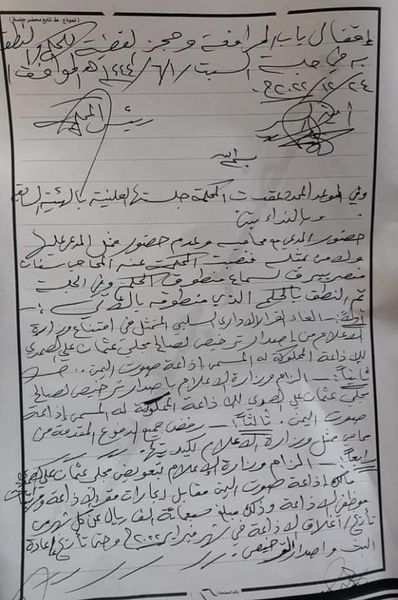 (نموذج. ط. تابع محضر جلسة)
إقفال باب المرافعة وحجز القضية للحكم والنطق
به في جلسة السبت ١/٦/١٤٤٤هـ الموافق
٢٤/١٢/٢٠٢٢م.
أمين السر رئيس المحكمة
بسم الله
وفي الموعد المحدد عقدت المحكمة جلستها العلنية بالهيئة السابقة
وبالنداء تبين
حضور المدعي مع محاميه وعدم حضور ممثل المدعى عليها
ولا من يمثله فنصبت المحكمة عنه المحامي
منصر لسماع منطوق الحكم وفي الجلسة
تم النطق بالحكم الذي منطوقه بالتالي :-
أولاً:- إلغاء القرار الإداري السلبي المتمثل في امتناع وزارة
الإعلام من إصدار ترخيص لصالح مجلي عثمان علي الصمدي
للإذاعة المملوكة له المسمى بإذاعة صوت اليمن ..
ثانياً:- إلزام وزارة الإعلام بإصدار ترخيص لصالح
مجلي عثمان علي الصمدي للإذاعة المملوكة له المسمى بإذاعة
صوت اليمن. ثالثاً:- رفض جميع الدفوع المقدمة من
محامي ممثل وزارة الإعلام لكيديتها
رابعاً:- إلزام وزارة الإعلام بتعويض مجلي عثمان علي الصمدي
مالك إذاعة صوت اليمن مقابل إيجارات مقر الإذاعة
موظفي الإذاعة وذلك مبلغ سبعمائة ألف ريال عن كل شهر من
تاريخ إغلاق الإذاعة في شهر فبراير ٢٠٢٢م وحتى تاريخ إعادة
البث وإصدار الترخيص.